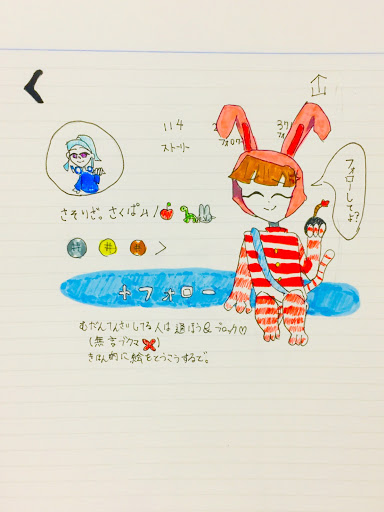 114 37
ストーリー フォロワ フォ
フォローしてよ?
さそりざ。さくぱム!
# # # >
+フォロー
むだんてんざいしてる人は通ほう&ブロック♡
(無言ブクマ❌)
きほん的に絵をとうこうするで。